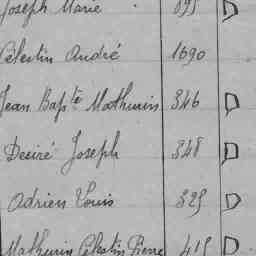 Joseph Marie 895 D
Célestin André 1690
Jean Bapte Mathurin 346 D
Desiré Joseph 348 D
Adrien Louis 325 D
Mathurin Célestin Pierre 415 D